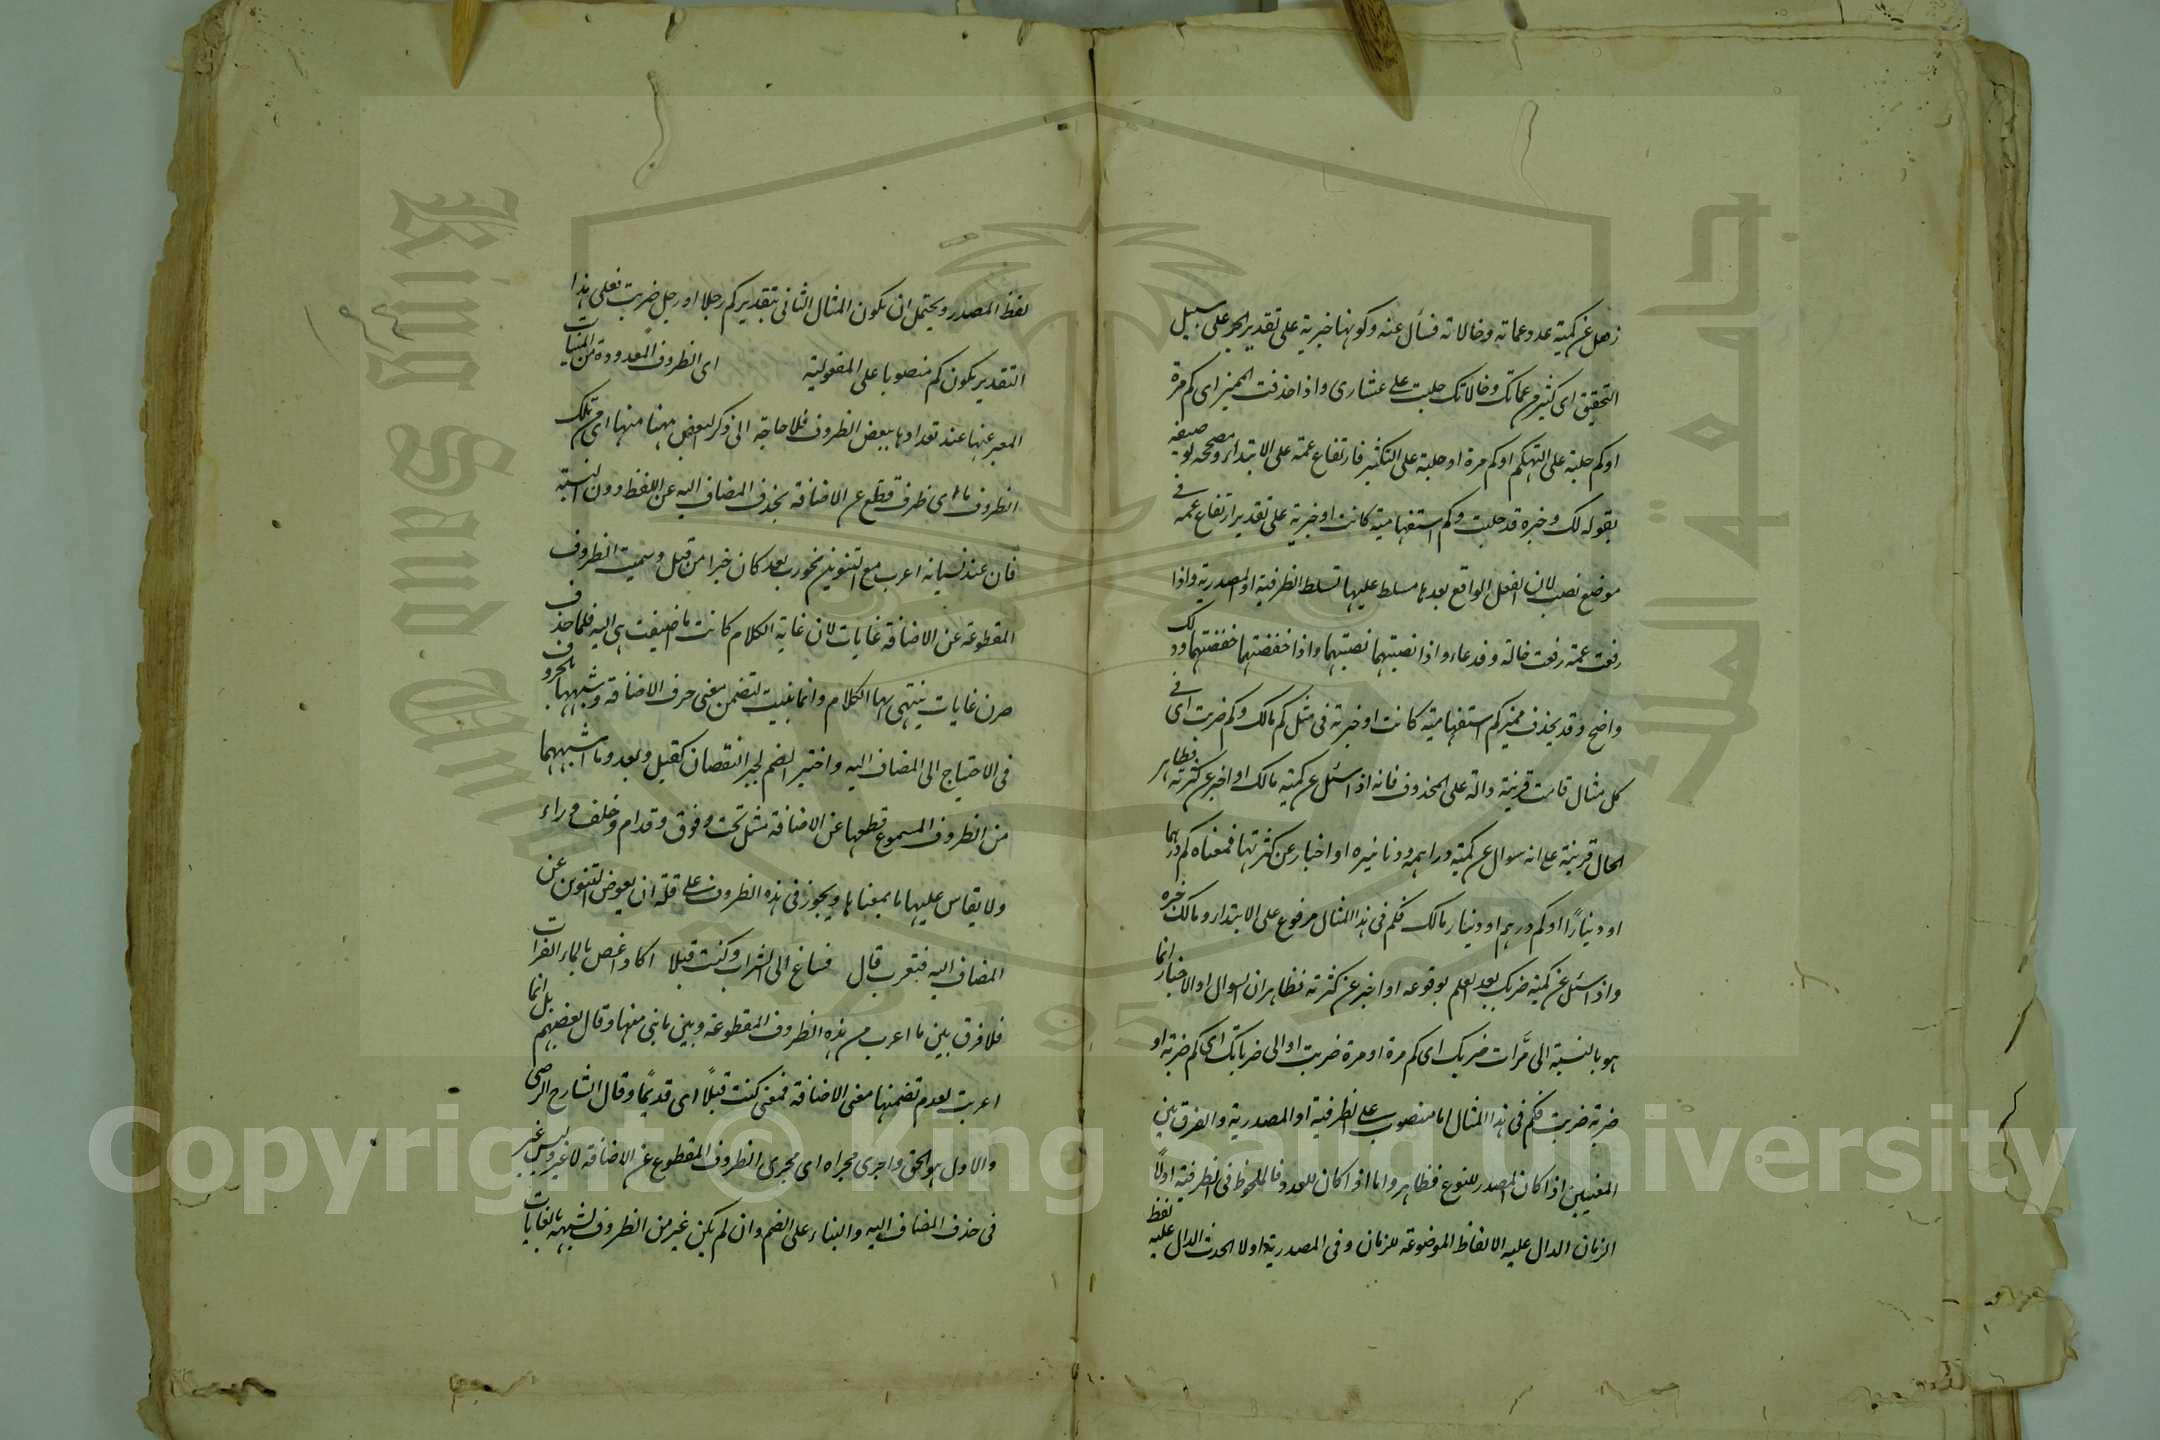 ذهل عن كمية عدد عماته وخالاته فسأل عنه وكونها خبرية على تقدير الجر على سبيل
التحقيق اى كثير من عماتك وخالاتك حلبت على عشارى واذا حذفت المميز اى كم مرة
اوكم حلبة على التهكم اوكم مرة او حلبة على التكثير فارتفاع عمة على الابتداء ومصححه توصيفه
بقوله لك وخبره قد حلبت وكم استفهامية كانت او خبرية على تقدير ارتفاع عمة فى
موضع نصب لان الفعل الواقع بعدها مسلط عليها تسلط الظرفية او المصدرية واذا
رفعت عمة رفعت خالة وفدعاء واذا نصبتهما نصبتهما واذا خفضتهما خفضتهما وذلك
واضح وقد يحذف مميز كم استفهامية كانت او خبرية فى مثل كم مالك وكم ضربت اى فى
كل مثال قامت قرينة دالة على المحذوف فانه اذا سئل عن كمية مالك او اخبر عن كثرته فظاهر
الحال قرينة على انه سوال عن كمية دراهمه ودنانيره او اخبار عن كثرتها فمعناه كم درهما
او دينارًا اوكم درهم او دينار مالك فكم فى هذا المثال مرفوع على الابتداء ومالك خبره
واذا سئل عن كمية ضربك بعد العلم بوقوعه او اخبر عن كثرته فظاهر ان السوال او الاخبار انما
هو بالنسبة الى مرّات ضربك اى كم مرة او مرة ضربت او الى ضرباتك اى كم ضربة او
ضربة ضربت فكم فى هذا المثال اما منصوب على الظرفية او المصدرية والفرق بين
المعنيين اذا كان المصدر للنوع فظاهر واما اذا كان للعدد فالملحوظ فى الظرفية اولًا
الزمان الدال عليه الالفاظ الموضوعة للزمان وفى المصدرية اولا الحدث الدال عليه لفظ
لفظ المصدر ويحتمل ان يكون المثال الثانى بتقدير كم رجلا او رجل ضربت فعلى هذا
التقدير يكون كم منصوبا على المفعولية اى الظروف المعدودة من المبنيات
المعبر عنها عند تعدادها ببعض الظروف فلا حاجة الى ذكر البعض ههنا منها اى من تلك
الظروف ما اى ظرف قطع عن الاضافة بحذف المضاف اليه عن اللفظ دون النسبة
فان عند نسيانه اعرب مع التنوين نحو رب بعد كان خيرا من قبل وسميت الظروف
المقطوعة عن الاضافة غايات لان غاية الكلام كانت ما اضيفت هى اليه فلما حذف
صرن غايات ينتهى بها الكلام وانما بنيت لتضمن معنى حرف الاضافة وشبهها بالحروف
فى الاحتياج الى المضاف اليه واختير الضم لجبر النقصان كقبل وبعد وما اشبههما
من الظروف المسموع قطعها عن الاضافة مثل تحت وفوق وقدام وخلف وراء
ولا يقاس عليها ما بمعناها ويجوز فى هذه الظروف على قلة ان يعوض التنوين عن
المضاف اليه فتعرب قال فساغ الى الشراب وكنت قبلا اكاد اغص بالماء الفرات
فلا فرق بين ما اعرب من هذه الظروف المقطوعة وبين ما بنى منها وقال بعضهم بل انما
اعربت لعدم تضمنها معنى الاضافة فمعنى كنت قبلًا اى قديمًا وقال الشارح الرضى
والاول هو الحق واجرى مجراه اى مجرى الظروف المقطوع عن الاضافة لا غير وليس غير
فى حذف المضاف اليه والبناء على الضم وان لم يكن غير من الظروف لشبهه بالغايات
Copyright © King Saud University